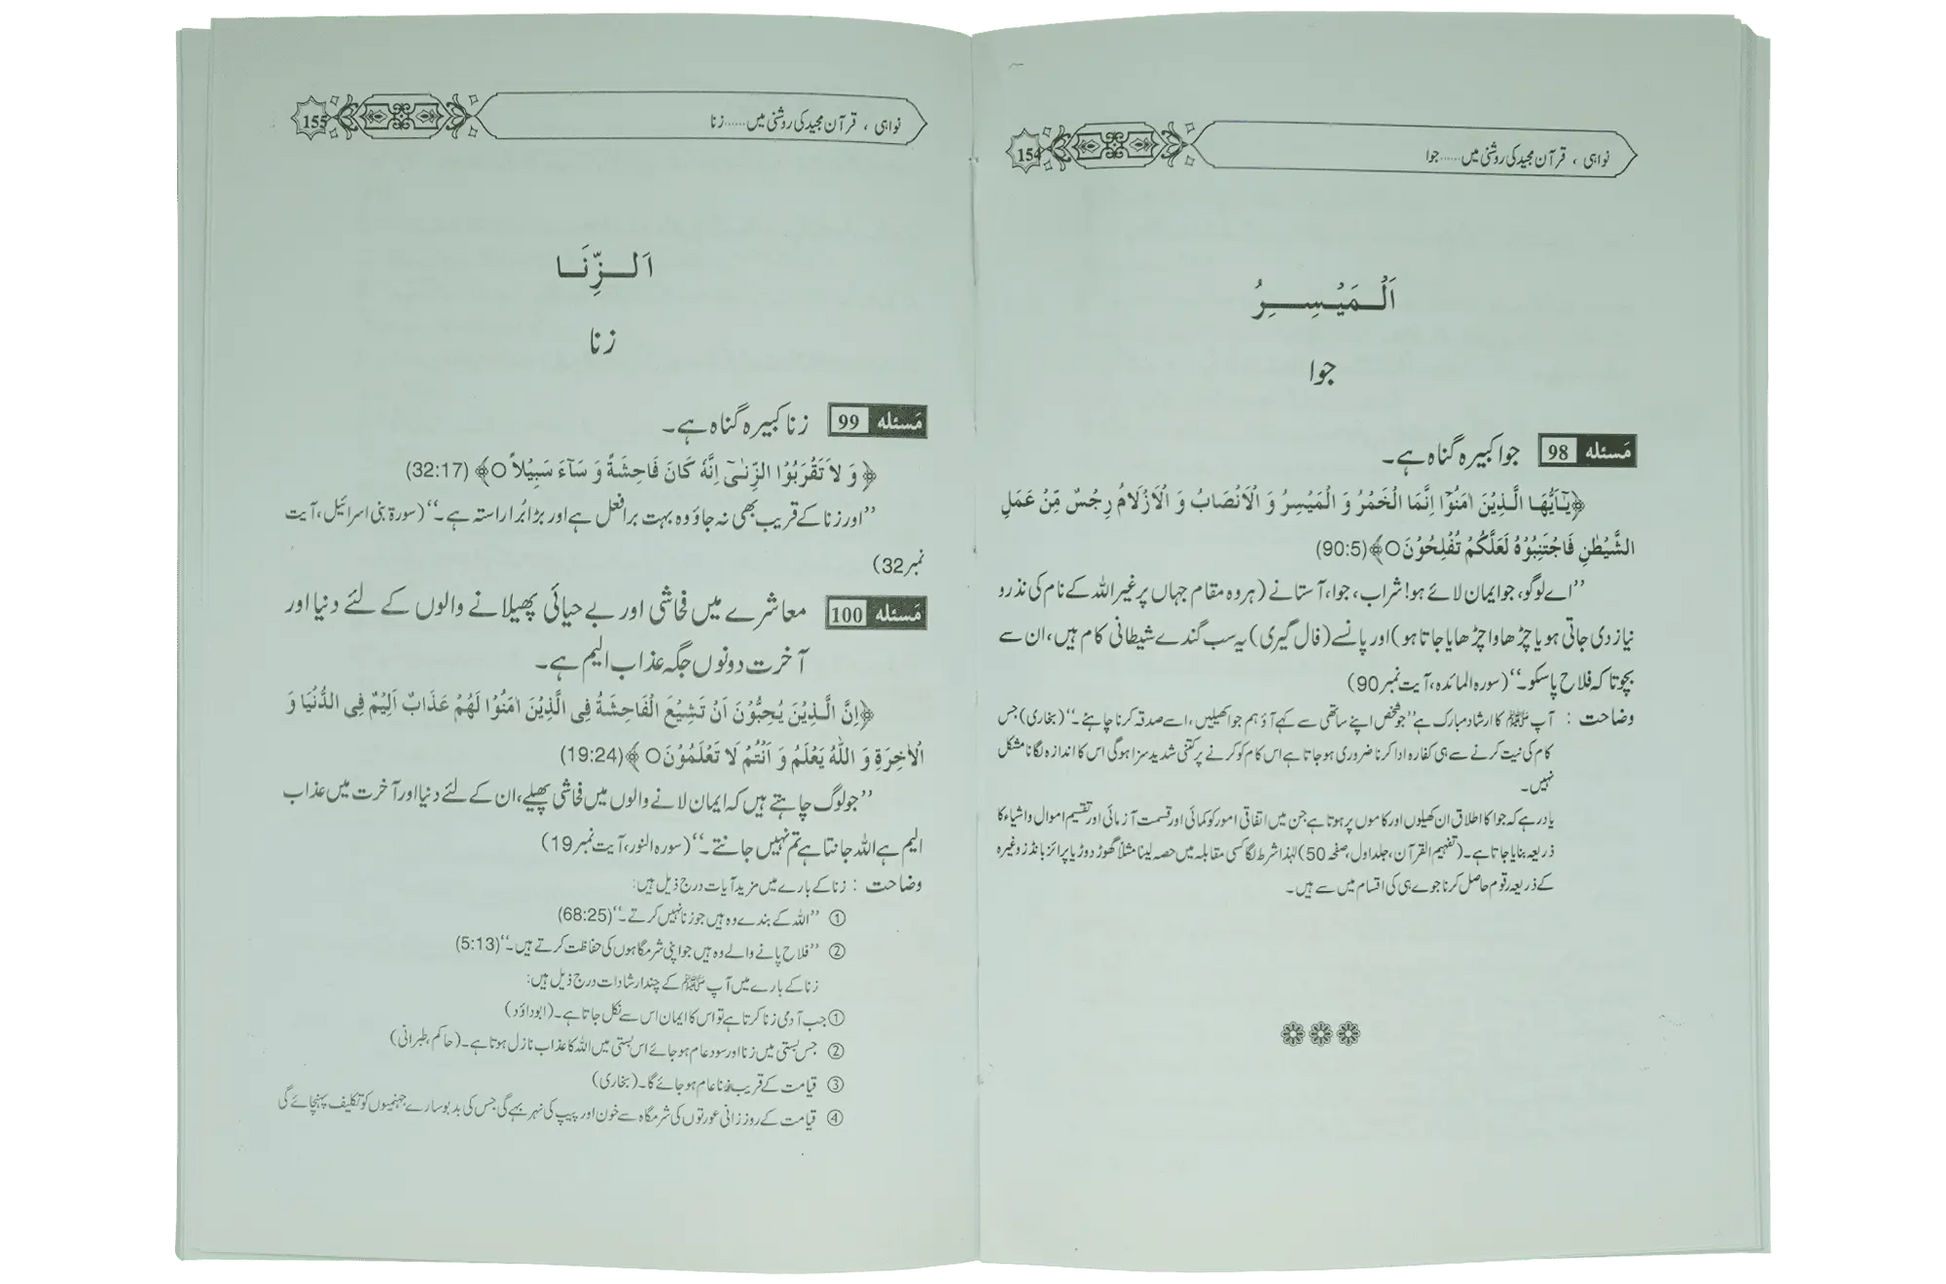 نواہی ، قرآن مجید کی روشنی میں......جوا
154
اَلْـمَيْـسِـــرُ
جوا
مَسئله 98 جوا کبیرہ گناہ ہے۔
﴿يٰٓـاَيُّهَـا الَّـذِيْنَ اٰمَنُوْٓا اِنَّمَا الْخَمْرُ وَ الْمَيْسِرُ وَ الْاَنْصَابُ وَ الْاَزْلَامُ رِجْسٌ مِّنْ عَمَلِ
الشَّيْطٰنِ فَاجْتَنِبُوْهُ لَعَلَّكُمْ تُفْلِحُوْنَ○﴾(90:5)
’’اے لوگو، جو ایمان لائے ہو! شراب، جوا، آستانے (ہر وہ مقام جہاں پر غیر اللہ کے نام کی نذر و
نیاز دی جاتی ہو یا چڑھاوا چڑھایا جاتا ہو) اور پانسے (فال گیری) یہ سب گندے شیطانی کام ہیں، ان سے
بچو تا کہ فلاح پاسکو۔‘‘ (سورہ المائدہ، آیت نمبر 90)
وضاحت : آپ ﷺ کا ارشاد مبارک ہے ’’جو شخص اپنے ساتھی سے کہے آؤ ہم جوا کھیلیں، اسے صدقہ کرنا چاہئے۔‘‘ (بخاری) جس
کام کی نیت کرنے سے ہی کفارہ ادا کرنا ضروری ہو جاتا ہے اس کام کو کرنے پر کتنی شدید سزا ہوگی اس کا اندازہ لگانا مشکل
نہیں۔
یاد رہے کہ جوا کا اطلاق ان کھیلوں اور کاموں پر ہوتا ہے جن میں اتفاقی امور کو کمائی اور قسمت آزمائی اور تقسیم اموال و اشیاء کا
ذریعہ بنایا جاتا ہے۔ (تفہیم القرآن، جلد اول، صفحہ 50) لہٰذا شرط لگا کسی مقابلہ میں حصہ لینا مثلاً گھوڑ دوڑ یا پرائز بانڈز وغیرہ
کے ذریعہ رقوم حاصل کرنا جوے ہی کی اقسام میں سے ہیں۔
نواہی ، قرآن مجید کی روشنی میں......زنا
155
اَلـــزِّنَـــا
زنا
مَسئله 99 زنا کبیرہ گناہ ہے۔
﴿ وَ لاَ تَقْرَبُوْا الزِّنٰىٓ اِنَّهٗ كَانَ فَاحِشَةً وَ سَآءَ سَبِيْلاً ○﴾ (32:17)
’’اور زنا کے قریب بھی نہ جاؤ وہ بہت برا فعل ہے اور بڑا بُرا راستہ ہے۔‘‘ (سورۃ بنی اسرائیل، آیت
نمبر 32)
مَسئله 100 معاشرے میں فحاشی اور بے حیائی پھیلانے والوں کے لئے دنیا اور
آخرت دونوں جگہ عذاب الیم ہے۔
﴿اِنَّ الَّـذِيْنَ يُحِبُّوْنَ اَنْ تَشِيْعَ الْفَاحِشَةُ فِى الَّذِيْنَ اٰمَنُوْا لَهُمْ عَذَابٌ اَلِيْمٌ فِى الدُّنْيَا وَ
الْاٰخِرَةِ وَ اللّٰهُ يَعْلَمُ وَ اَنْتُمْ لَا تَعْلَمُوْنَ○ ﴾(19:24)
’’جو لوگ چاہتے ہیں کہ ایمان لانے والوں میں فحاشی پھیلے، ان کے لئے دنیا اور آخرت میں عذاب
الیم ہے اللہ جانتا ہے تم نہیں جانتے۔‘‘ (سورہ النور، آیت نمبر 19)
وضاحت : زنا کے بارے میں مزید آیات درج ذیل ہیں:
① ’’اللہ کے بندے وہ ہیں جو زنا نہیں کرتے۔‘‘ (68:25)
② ’’فلاح پانے والے وہ ہیں جو اپنی شرمگاہوں کی حفاظت کرتے ہیں۔‘‘ (5:13)
زنا کے بارے میں آپ ﷺ کے چند ارشادات درج ذیل ہیں:
① جب آدمی زنا کرتا ہے تو اس کا ایمان اس سے نکل جاتا ہے۔ (ابوداؤد)
② جس بستی میں زنا اور سود عام ہو جائے اس بستی میں اللہ کا عذاب نازل ہوتا ہے۔ (حاکم، طبرانی)
③ قیامت کے قریب زنا عام ہو جائے گا۔ (بخاری)
④ قیامت کے روز زانی عورتوں کی شرمگاہ سے خون اور پیپ کی نہر بہے گی جس کی بدبو سارے جہنمیوں کو تکلیف پہنچائے گی